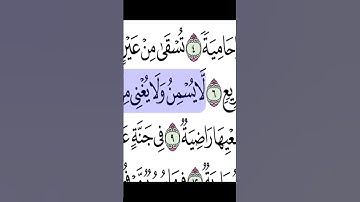 حَامِيَةً ٤ تُسْقَىٰ مِنْ عَيْنٍ
رِيعٍ ٦ لَّا يُسْمِنُ وَلَا يُغْنِى مِ
عْيِهَا رَاضِيَةٌ ٩ فِى جَنَّةٍ عَ